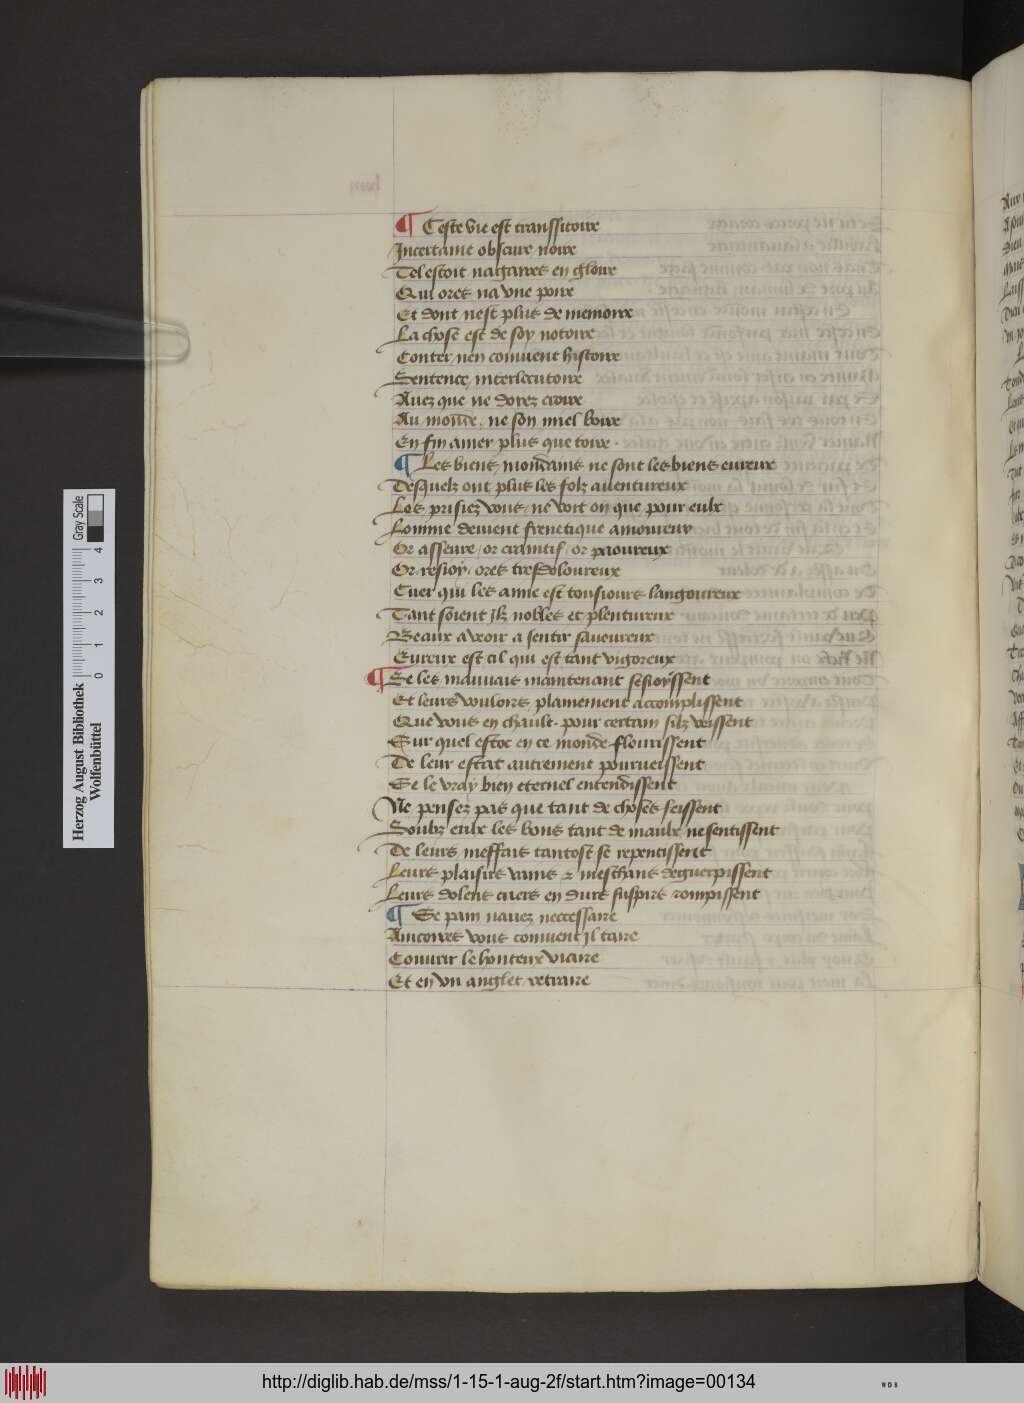 ¶ Ceste vie est transsitoire
Incertaine obscure noire
Tel estoit nagaires en gloire
Qui ores na vne poire
Et dont nest plus de memoire
La chose est de soy notoire
Conter nen conuient histoire
Sentence interlecutoire
Auez que ne dorez croire
Au monde, ne son miel boire
En fin amer plus que toire .
¶ Les biens mondains ne sont les biens eureux
Desquelz ont plus les folz auentureux
Les prisiez vous, ne voit on que pour eulx
Lomme deuient frenetique amoureux
Or asseure, or craintif, or paoureux
Or resioy, ores tresdoloureux
Cuer qui les aime est tousiours langoureux
Tant soient ilz nobles et plentureux
Beaux a veoir a sentir saueureux
Eureux est cil qui est tant vigoreux
¶ Se les mauuais maintenant sesioyssent
Et leurs vouloirs plainement accomplissent
Que vous en chault. pour certain silz veissent
Sur quel estoc en ce monde flourissent
De leur estat autrement pourueissent
Se le vray bien eternel entendissent
Ne pensez pas que tant de choses feissent
Soubz eulx les bons tant de maulx ne sentissent
De leurs meffais tantost se repentissent
Leurs plaisirs vains & meschans deguerpissent
Leurs dolens cuers en durs suspirs rompissent
¶ Se pain nauez neccessaire
Aincoires vous conuient il taire
Couurir le honteux viaire
Et en vn anglet retraire
Herzog August Bibliothek
Wolfenbüttel
0 1 2 3 4
Gray Scale
http://diglib.hab.de/mss/1-15-1-aug-2f/start.htm?image=00134
WDB